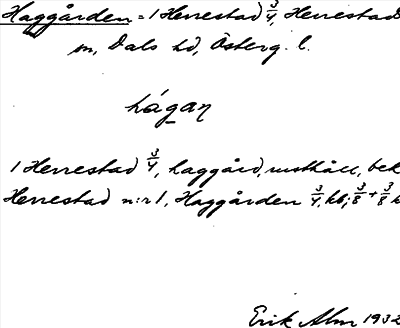 Haggården = 1 Herrestad 3/4, Herrestads
sn, Dals hd, Österg. l.
hágan
1 Herrestad 3/4, haggård, rusthåll, bek
Herrestad n:r 1, Haggården 3/4, kb; 3/8 + 3/8 k
Erik Alm 1932